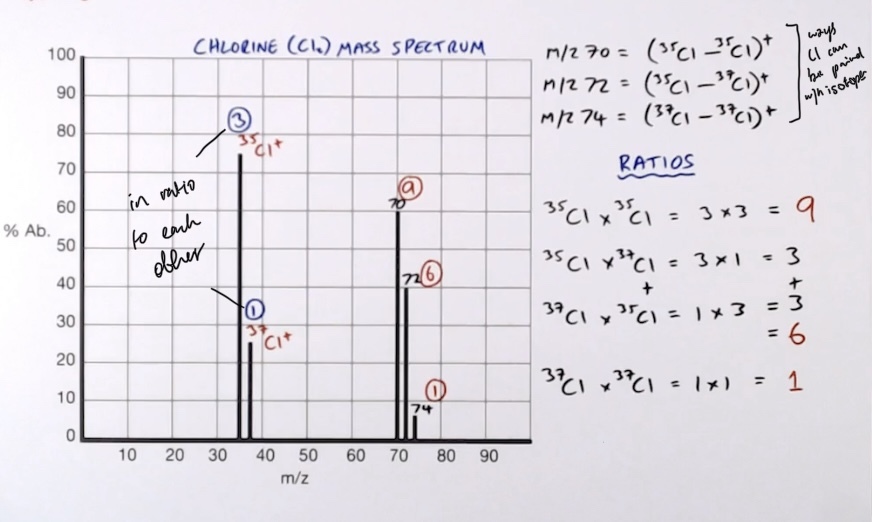 CHLORINE (Cl₂) MASS SPECTRUM
100
90
80
70
60
50
40
30
20
10
0
% Ab.
10 20 30 40 50 60 70 80 90
m/z
③
³⁵Cl⁺
in ratio
to each
other
①
³⁷Cl⁺
⑨
70
72 ⑥
①
74
m/z 70 = (³⁵Cl – ³⁵Cl)⁺
m/z 72 = (³⁵Cl – ³⁷Cl)⁺
m/z 74 = (³⁷Cl – ³⁷Cl)⁺
ways
Cl can
be paired
w/n isotopes
RATIOS
³⁵Cl × ³⁵Cl = 3 × 3 = 9
³⁵Cl × ³⁷Cl = 3 × 1 = 3
+ +
³⁷Cl × ³⁵Cl = 1 × 3 = 3
= 6
³⁷Cl × ³⁷Cl = 1 × 1 = 1